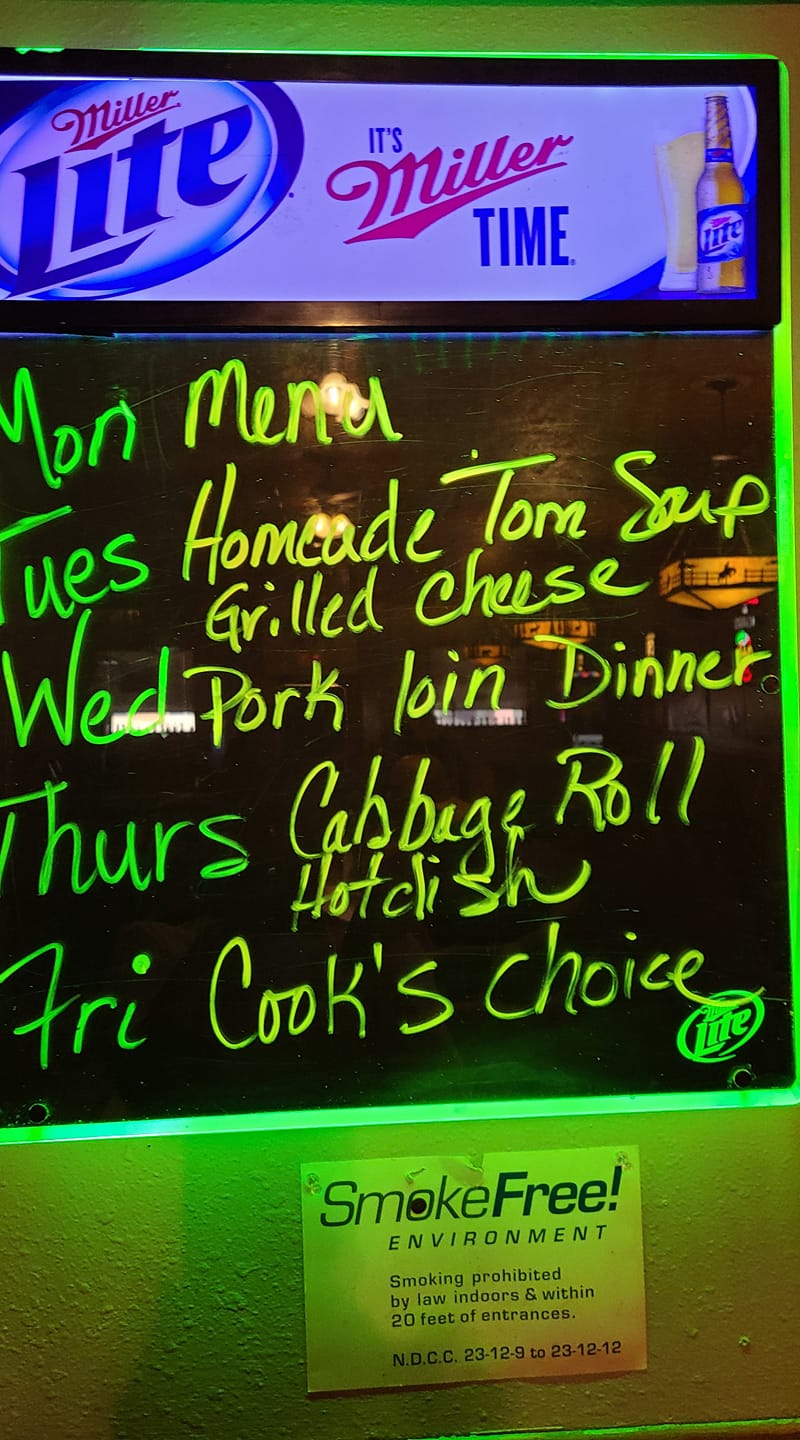 Miller
Lite
IT'S
Miller
TIME
Lite
Mon Menu
Tues Homeade Tom Soup
Grilled cheese
Wed Pork loin Dinner
Thurs Cabbage Roll
Hotdish
Fri Cook's choice
Lite
SmokeFree!
ENVIRONMENT
Smoking prohibited
by law indoors & within
20 feet of entrances.
N.D.C.C. 23-12-9 to 23-12-12